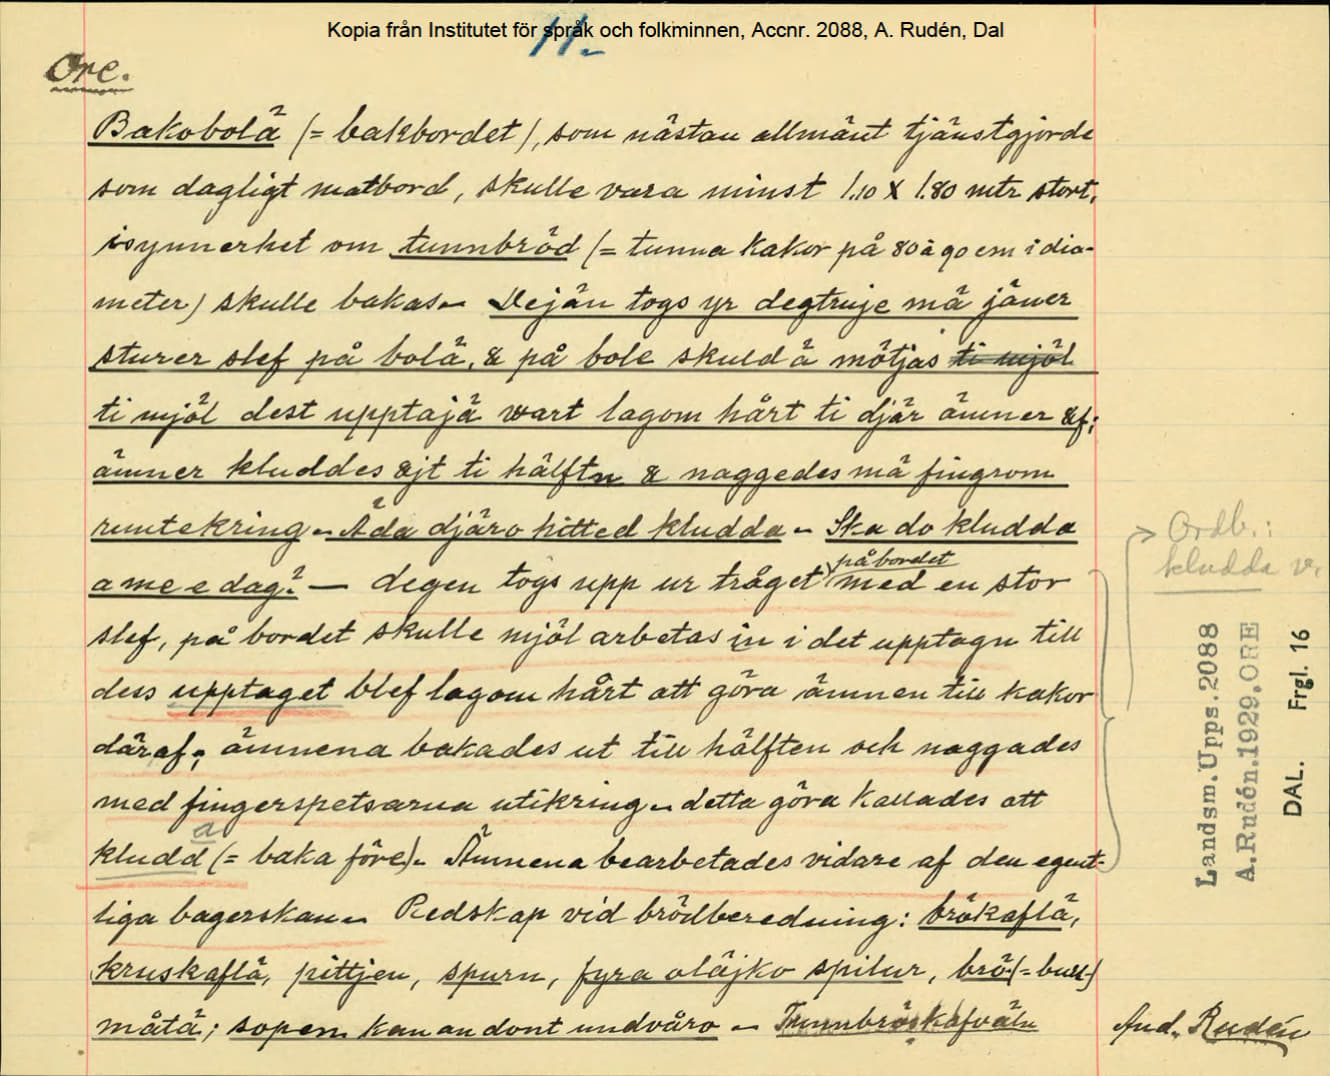 Kopia från Institutet för språk och folkminnen, Accnr. 2088, A. Rudén, Dal
11.
Ore.
Bakobolä (= bakbordet), som nästan allmänt tjänstgjorde
som dagligt matbord, skulle vara minst 1.10 X 1.80 mtr stort,
isynnerhet om tunnbröd (= tunna kakor på 80 à 90 cm i dia-
meter) skulle bakas. Dejän togs yr degtruje mä jäner
sturer slef på bolä, & på bole skuld ä mötjäs ti mjöl
ti mjöl dest upptajä wart lagom hårt ti djär ämner &f;
ämner kluddes äjt ti hälftn & naggedes mä fingrom
runtekring. Äda djäro hitted kludda. Ska do kludda
a me e dag? — Degen togs upp ur tråget på bordet med en stor
slef, på bordet skulle mjöl arbetas in i det upptagn till
dess upptaget blef lagom hårt att göra ämnen till kakor
däraf; ämnena bakades ut till hälften och naggades
med fingerspetsarna utikring. detta göra kallades att
kludda (= baka före). Ämnena bearbetades vidare af den egent-
liga bagerskan. Redskap vid brödberedning: brökaflä,
kruskaflä, pittjen, spurn, fyra oläjko spilur, brö (= bull)
måtä; sopen kan an dont undvåro. Tunnbröskafväln
And. Rudén
Ordb.:
kludda v.
Landsm. Upps. 2088
A. Rudén. 1929. ORE
DAL. Frgl. 16